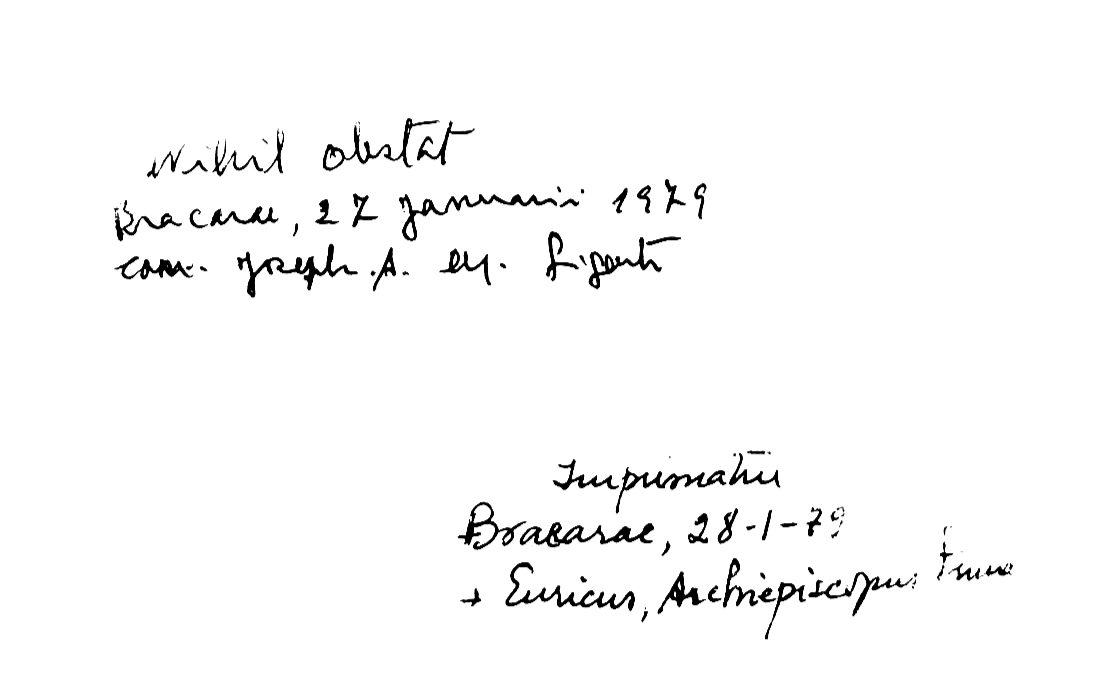 Nihil obstat
Bracarae, 27 januarii 1979
can. Joseph. A.
Imprimatur
Bracarae, 28-1-79
+ Euricus, Archiepiscopus